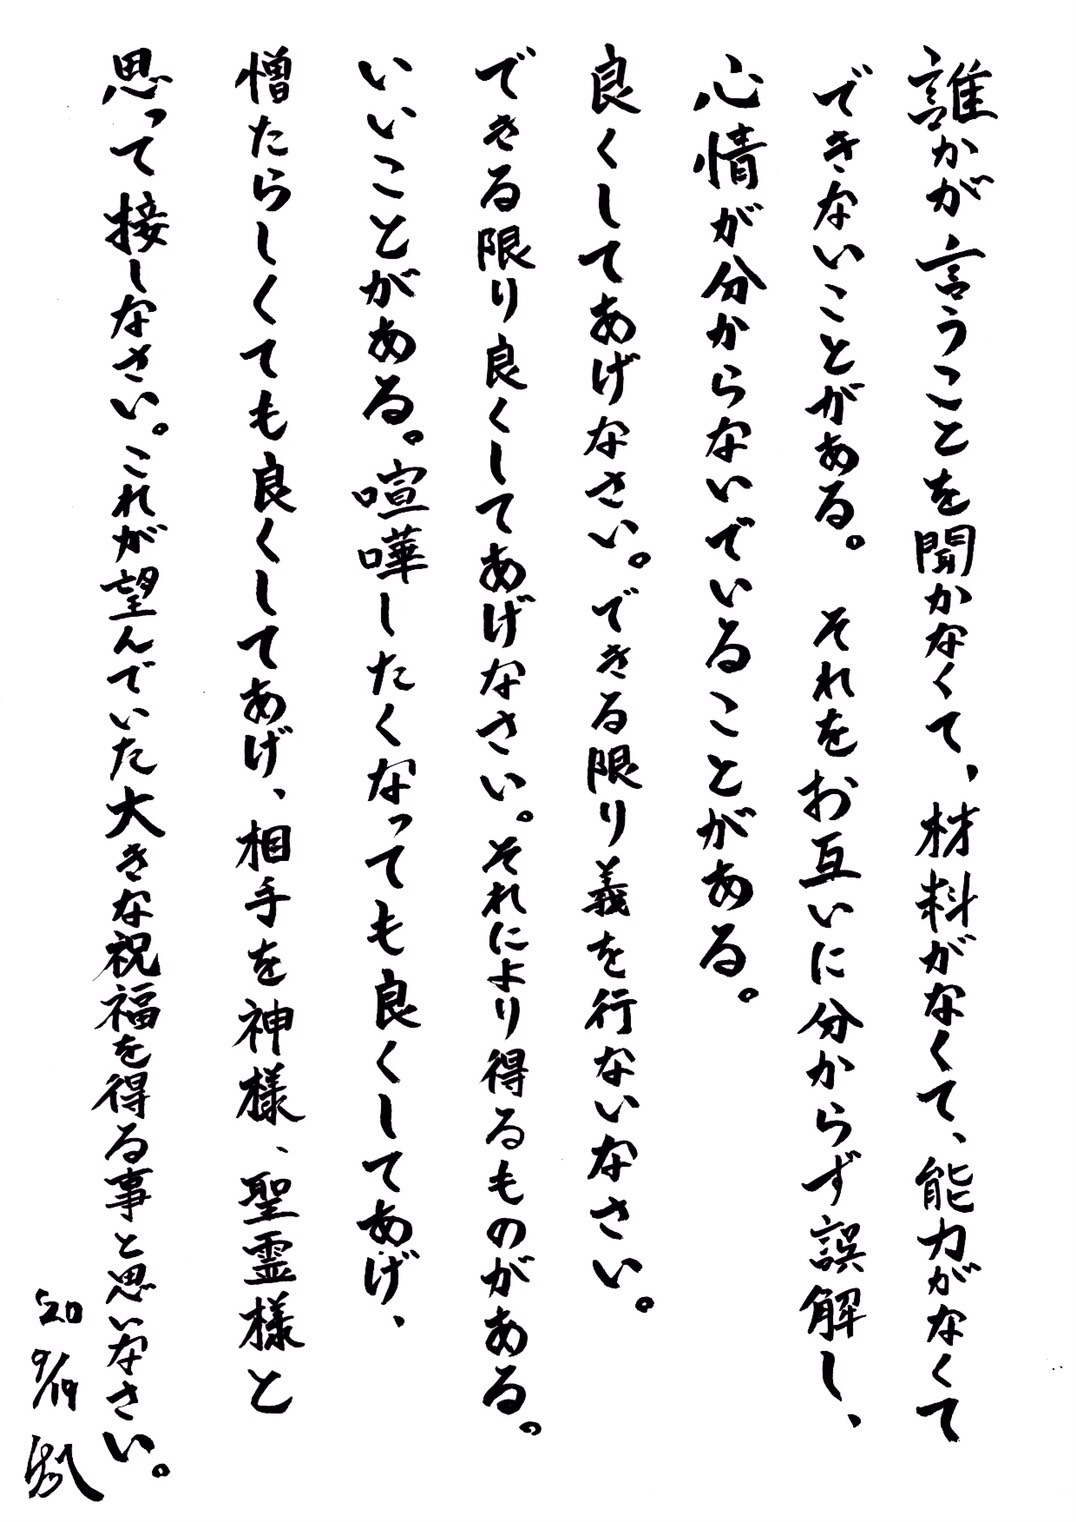 誰かが言うことを聞かなくて、材料がなくて、能力がなくて
できないことがある。 それをお互いに分からず誤解し、
心情が分からないでいることがある。
良くしてあげなさい。できる限り義を行ないなさい。
できる限り良くしてあげなさい。それにより得るものがある。
いいことがある。喧嘩したくなっても良くしてあげ、
憎たらしくても良くしてあげ、相手を神様、聖霊様と
思って接しなさい。これが望んでいた大きな祝福を得る事と思いなさい。
'20
9/19